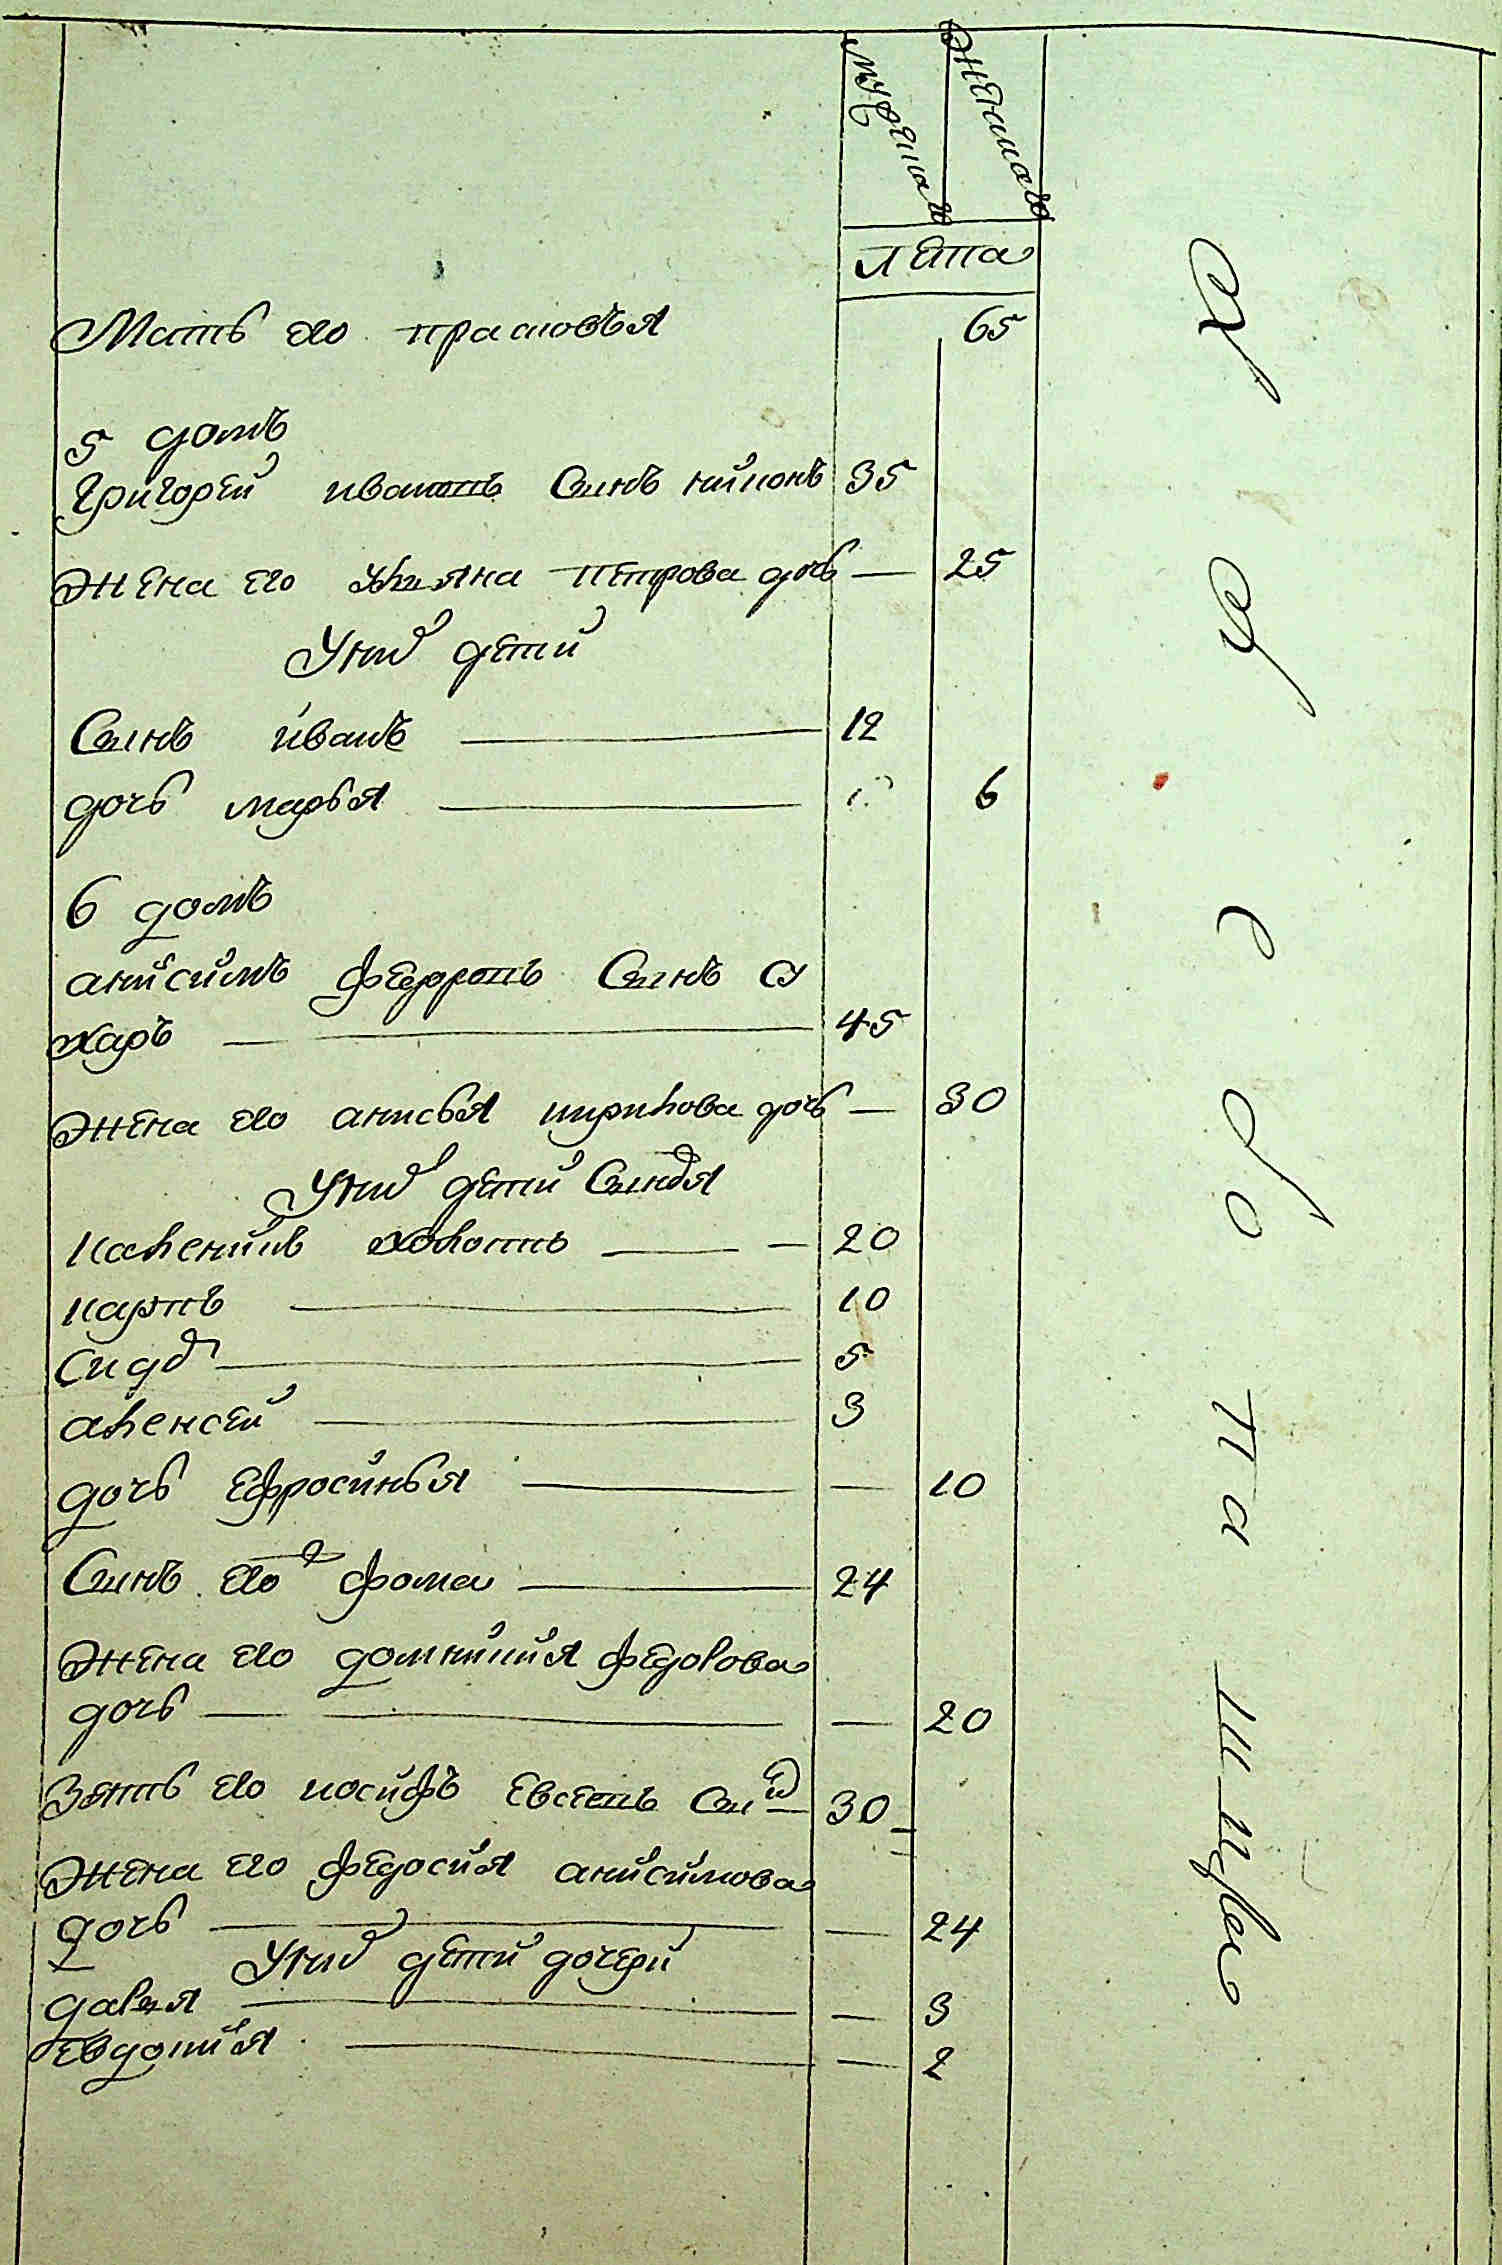 мужеска
женска
лѣта
Мать его прасковья 65
5 домъ
Григорей ивановъ Сынъ никонъ 35
Жена его ульяна петрова дочь — 25
У них дети
Сынъ иванъ 12
дочь марья 6
6 домъ
анисимъ федоровъ Сынъ су
харь 45
Жена его анисья кирилова дочь — 30
У них дети Сыновья
каленикъ холостъ 20
карпъ 10
Сидоръ 5
алексей 3
дочь ефросинья — 10
Сынъ его 2 фома 24
Жена его домникия федорова
дочь — 20
Зять его иосифъ евсеевъ Сынъ 30
Жена его федосия анисимова
дочь — 24
У них дети дочери
дарья — 3
евдокия — 2